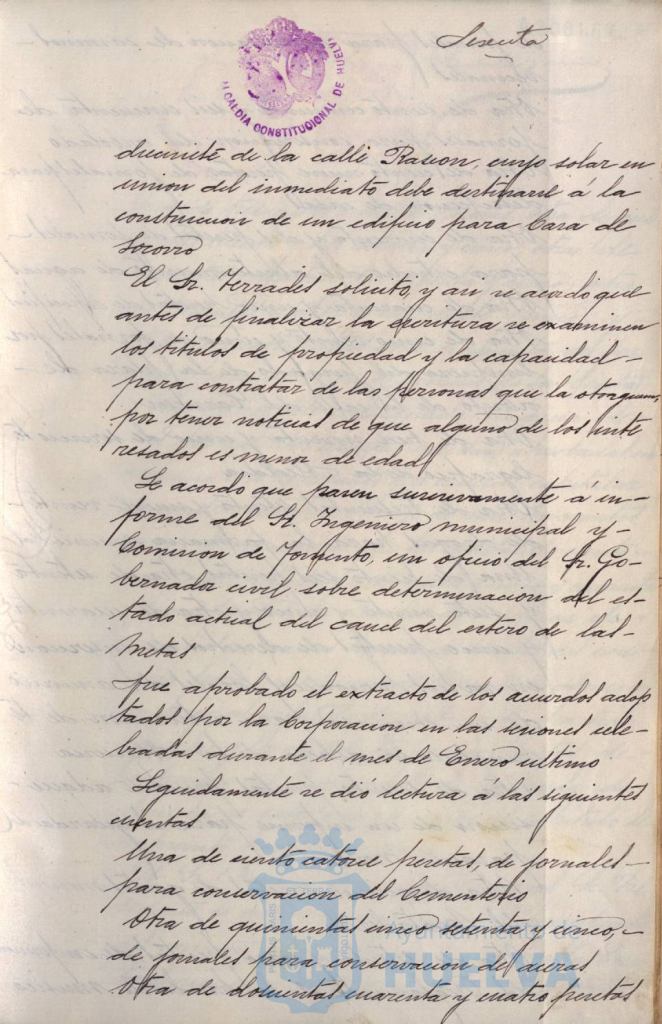 Sesenta
ALCALDIA CONSTITUCIONAL DE HUELVA
diecisiete de la calle Rascon, cuyo solar en
union del inmediato debe destinarse á la
construccion de un edificio para Casa de
Socorro
El Sr. Terrades solicitó, y asi se acordo que
antes de finalizar la escritura se examinen
los titulos de propiedad y la capacidad-
para contratar de las personas que la otorguen,
por tener noticias de que alguno de los inte
resados es menor de edad
Se acordo que pasen sucesivamente á in-
forme del Sr. Ingeniero municipal y-
Comision de Fomento, un oficio del Sr. Go-
bernador civil sobre determinacion del es-
tado actual del cauce del estero de las-
Metas
fue aprobado el extracto de los acuerdos adop
tados por la Corporacion en las sesiones cele-
bradas durante el mes de Enero ultimo
Seguidamente se dió lectura á las siguientes
cuentas
Una de ciento catorce pesetas, de jornales-
para conservacion del Cementerio
Otra de quinientas cinco setenta y cinco,-
de jornales para conservacion de aceras
Otra de doscientas cuarenta y cuatro pesetas
Ayuntamiento de
HUELVA